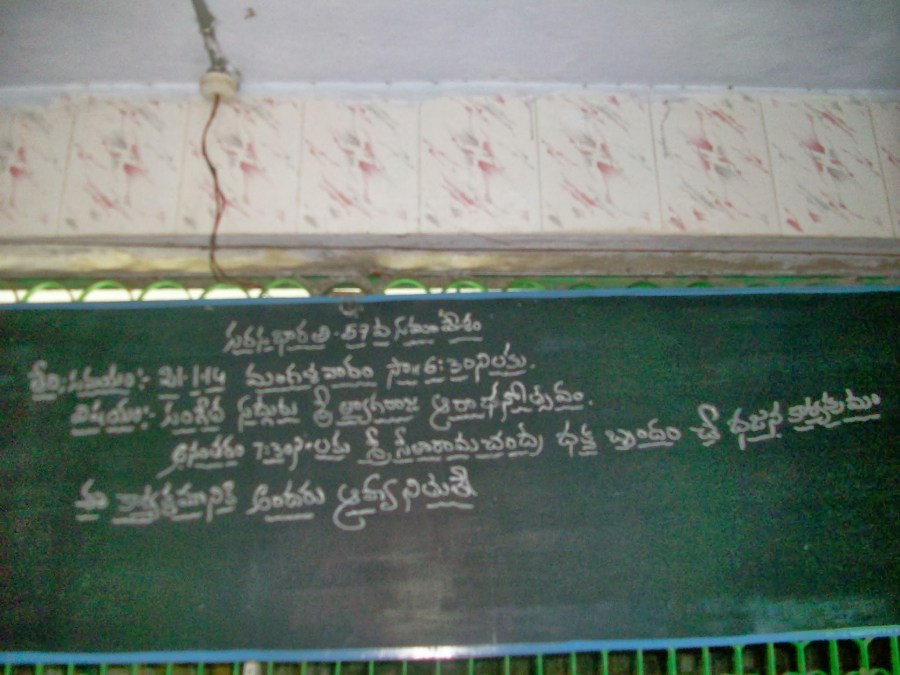 సరస భారతి - 57 వ సమావేశం
తేది, సమయం:- 21-1-14 మంగళవారం సా॥ 6:30 ని లకు.
విషయం:- సంగీత సద్గురు శ్రీ త్యాగరాజ ఆరాధనోత్సవం.
అనంతరం 7:30ని॥లకు శ్రీ సీతారామచంద్ర భక్త బృందం చే భజన కార్యక్రమం
ఈ కార్యక్రమానికి అందరు ఆహ్వానితులే